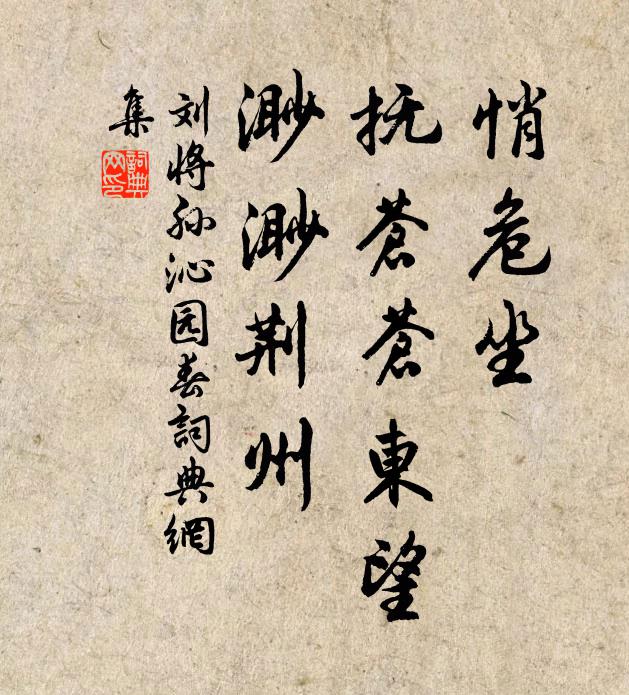 悄危坐
抚蒼蒼東望
渺渺荆州
刘将孙沁园春詞典網
集
詞典
网印